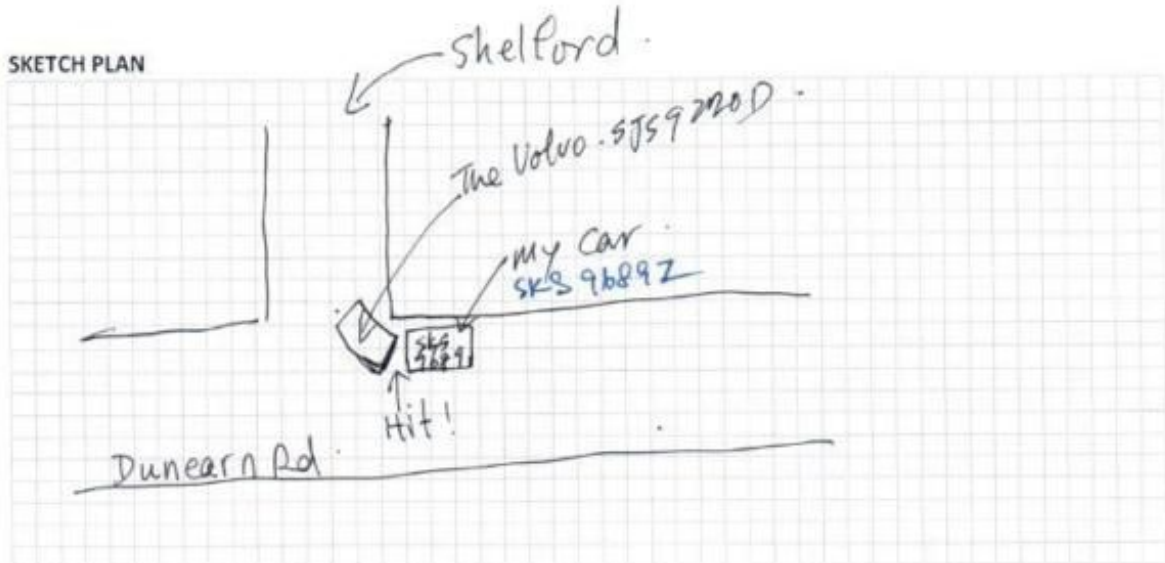 SKETCH PLAN
Shelford.
The Volvo. SJS9220D.
my car.
SKS 9689Z
SKS
9689
Hit!
Dunearn Rd.